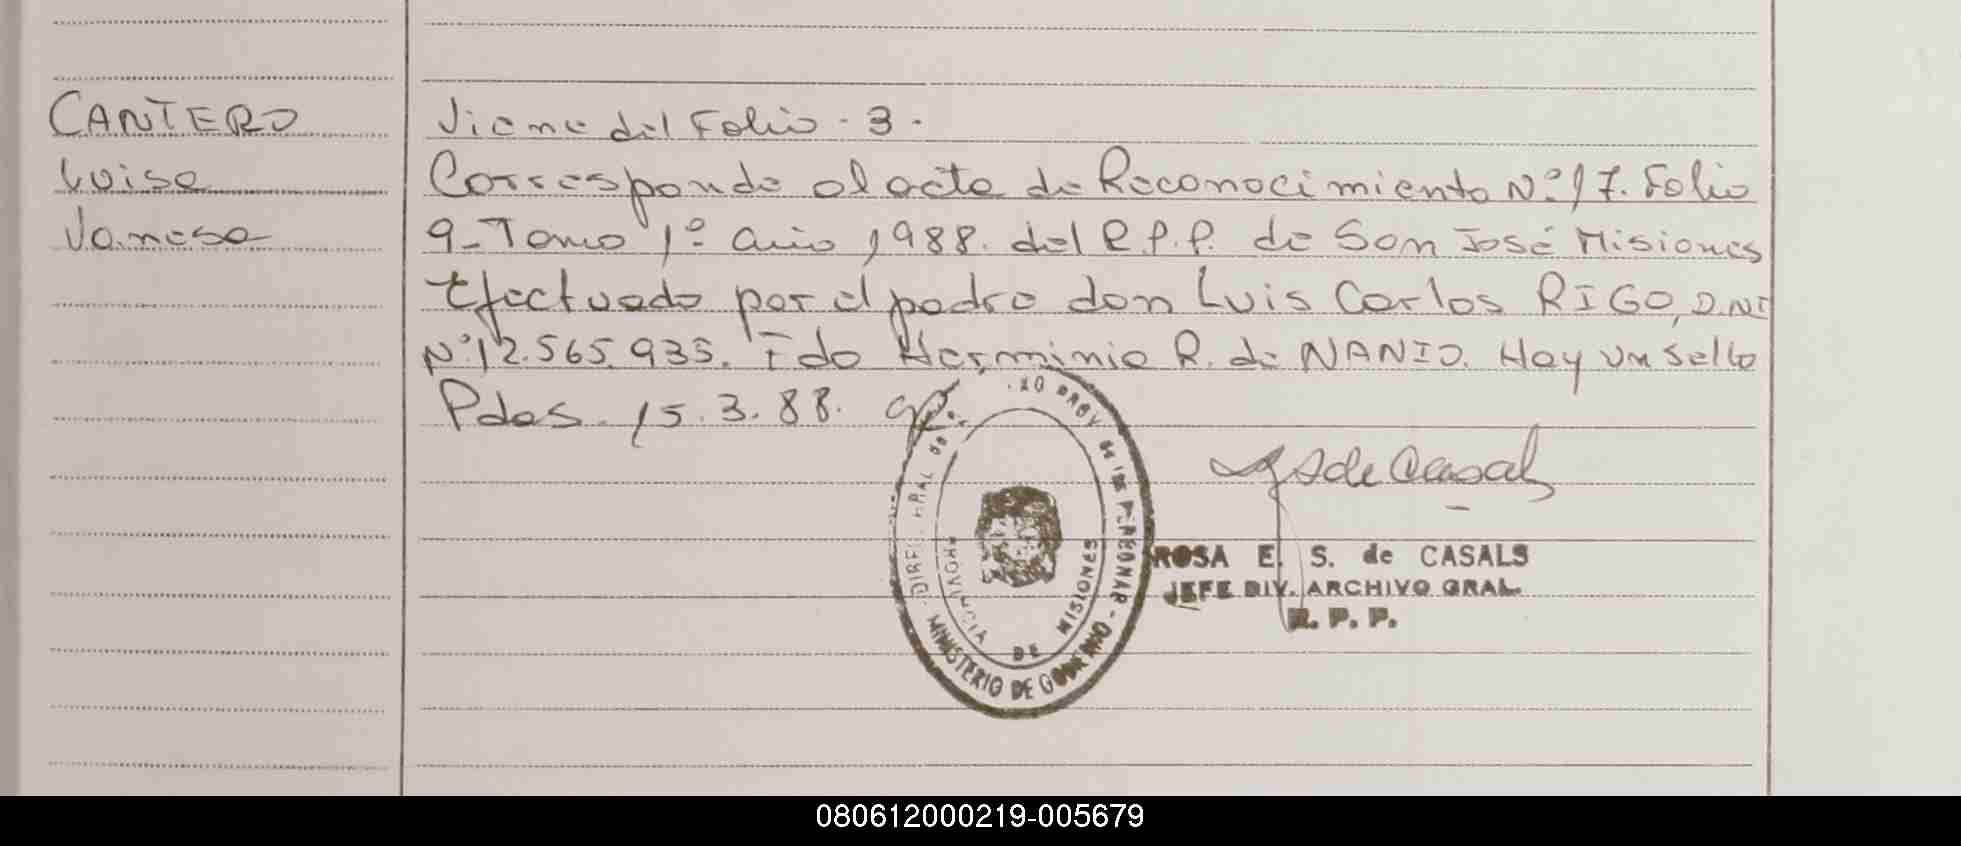 CANTERO
Luisa
Vanesa
Viene del Folio - 3 -
Corresponde al acta de Reconocimiento Nº 17. Folio
9_ Tomo 1º año 1988. del R.P.P. de San José Misiones
Efectuado por el padre don Luis Carlos RIGO, D.NI
Nº 12.565.935. Fdo Herminia R. de NANIO. Hay un sello
Pdas. 15.3.88.
S de Casals
ROSA E. S. de CASALS
JEFE DIV. ARCHIVO GRAL.
R. P. P.
MINISTERIO DE GOBIERNO
PROVINCIA DE MISIONES
080612000219-005679